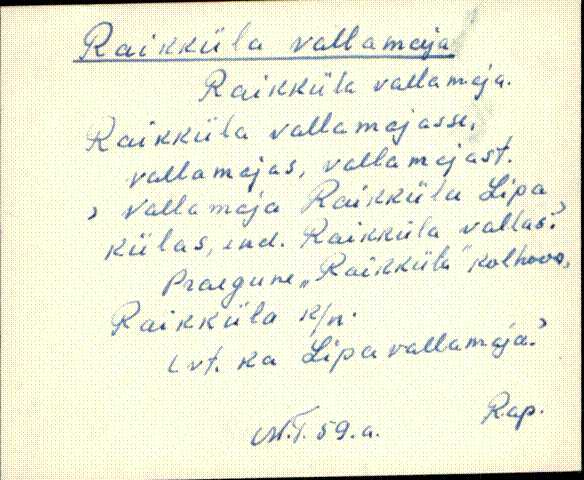 Raikküla vallamaja
Raikküla vallamaja.
Raikküla vallamajasse,
vallamajas, vallamajast.
, vallamaja Raikküla Lipa
külas, end. Raikküla vallas.'
Praegune „Raikküla" kolhoos,
Raikküla k/n.
(vt. ka Lipa vallamaja.)
Rap.
N.T. 59.a.